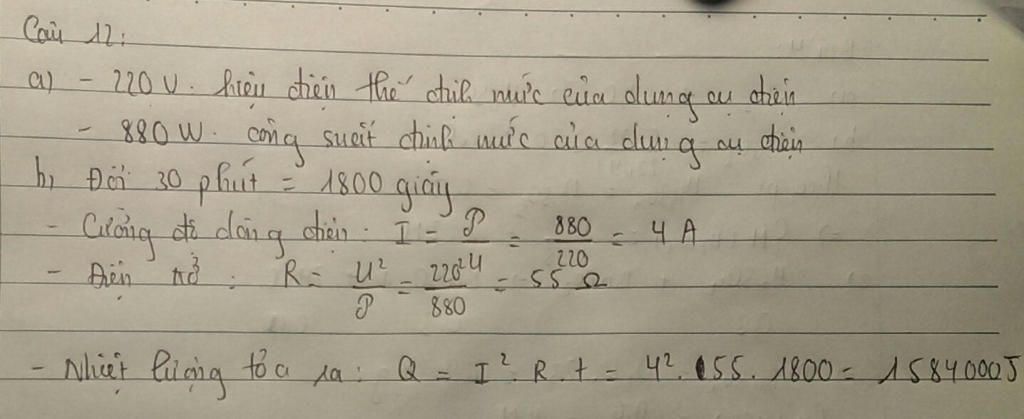 Câu 12:
a) - 220 V. hiệu điện thế định mức của dụng cụ điện
- 880 W. công suất định mức của dụng cụ điện
b, Đổi 30 phút = 1800 giây
- Cường độ dòng điện: I = P/U = 880/220 = 4 A
- Điện trở: R = U²/P = 220²/880 = 55 Ω
- Nhiệt lượng tỏa ra: Q = I². R. t = 4². 55. 1800 = 1584000J